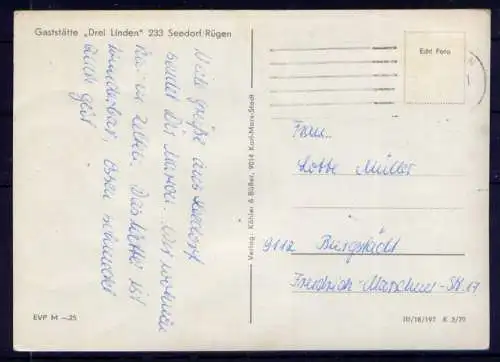 Gaststätte „Drei Linden" 233 Seedorf/Rügen
Viele Grüße aus Seedorf
sendet Dir Wir wohnen
Das Wetter ist
wunderbar, Essen schmeckt
auch gut
Verlag Köhler & Büßer, 9014 Karl-Marx-Stadt
Echt Foto
Frau
Lotte Müller
9112 Burgstädt
Friedrich-Marschner-Str. 17
EVP M —.25
III/18/197 K 3/70